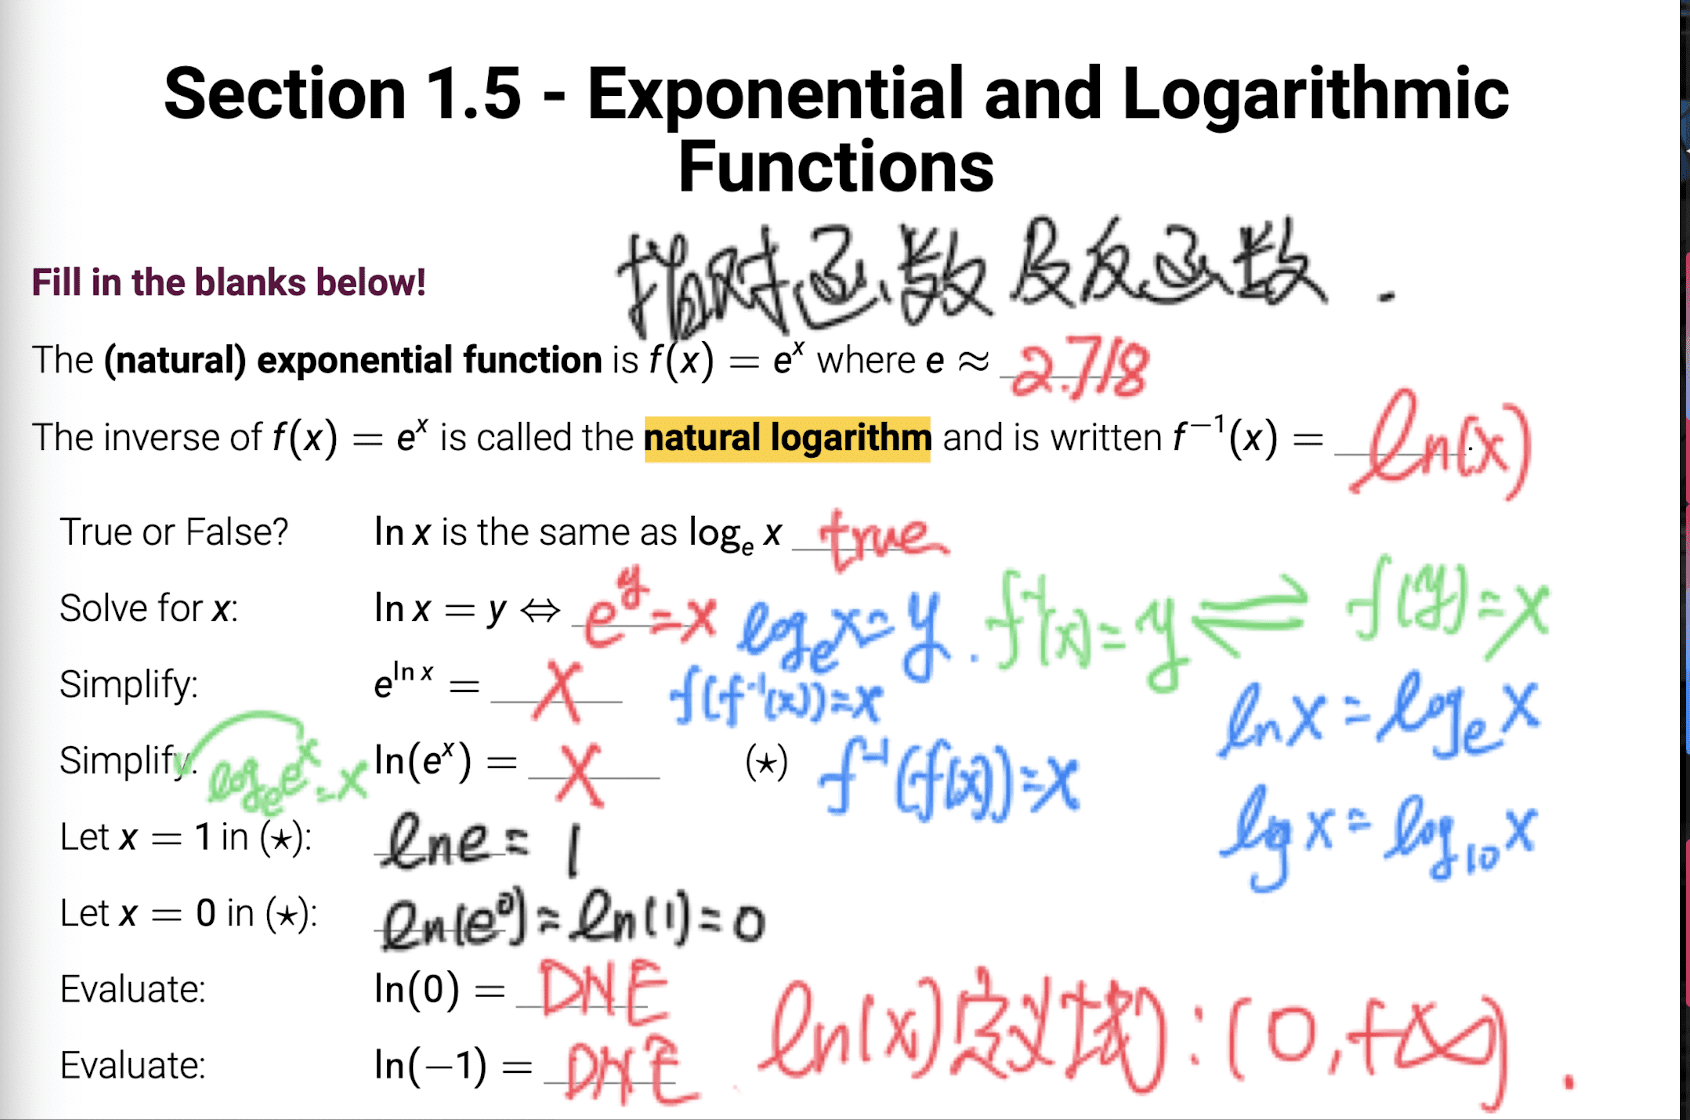 Section 1.5 - Exponential and Logarithmic
Functions
指对函数及反函数.
Fill in the blanks below!
The (natural) exponential function is f(x) = eˣ where e ≈ 2.718
The inverse of f(x) = eˣ is called the natural logarithm and is written f⁻¹(x) = ln(x).
True or False? ln x is the same as logₑ x true
Solve for x: ln x = y ⇔ e^y = x logₑx = y. f⁻¹(x) = y ⇌ f(y) = x
Simplify: e^{ln x} = x f(f⁻¹(x)) = x
lnx = logₑx
Simplify: logₑeˣ = x ln(eˣ) = x (⋆) f⁻¹(f(x)) = x
lgx = log₁₀x
Let x = 1 in (⋆): lne = 1
Let x = 0 in (⋆): ln(e⁰) = ln(1) = 0
Evaluate: ln(0) = DNE
ln(x)定义域: (0, +∞).
Evaluate: ln(−1) = DNE